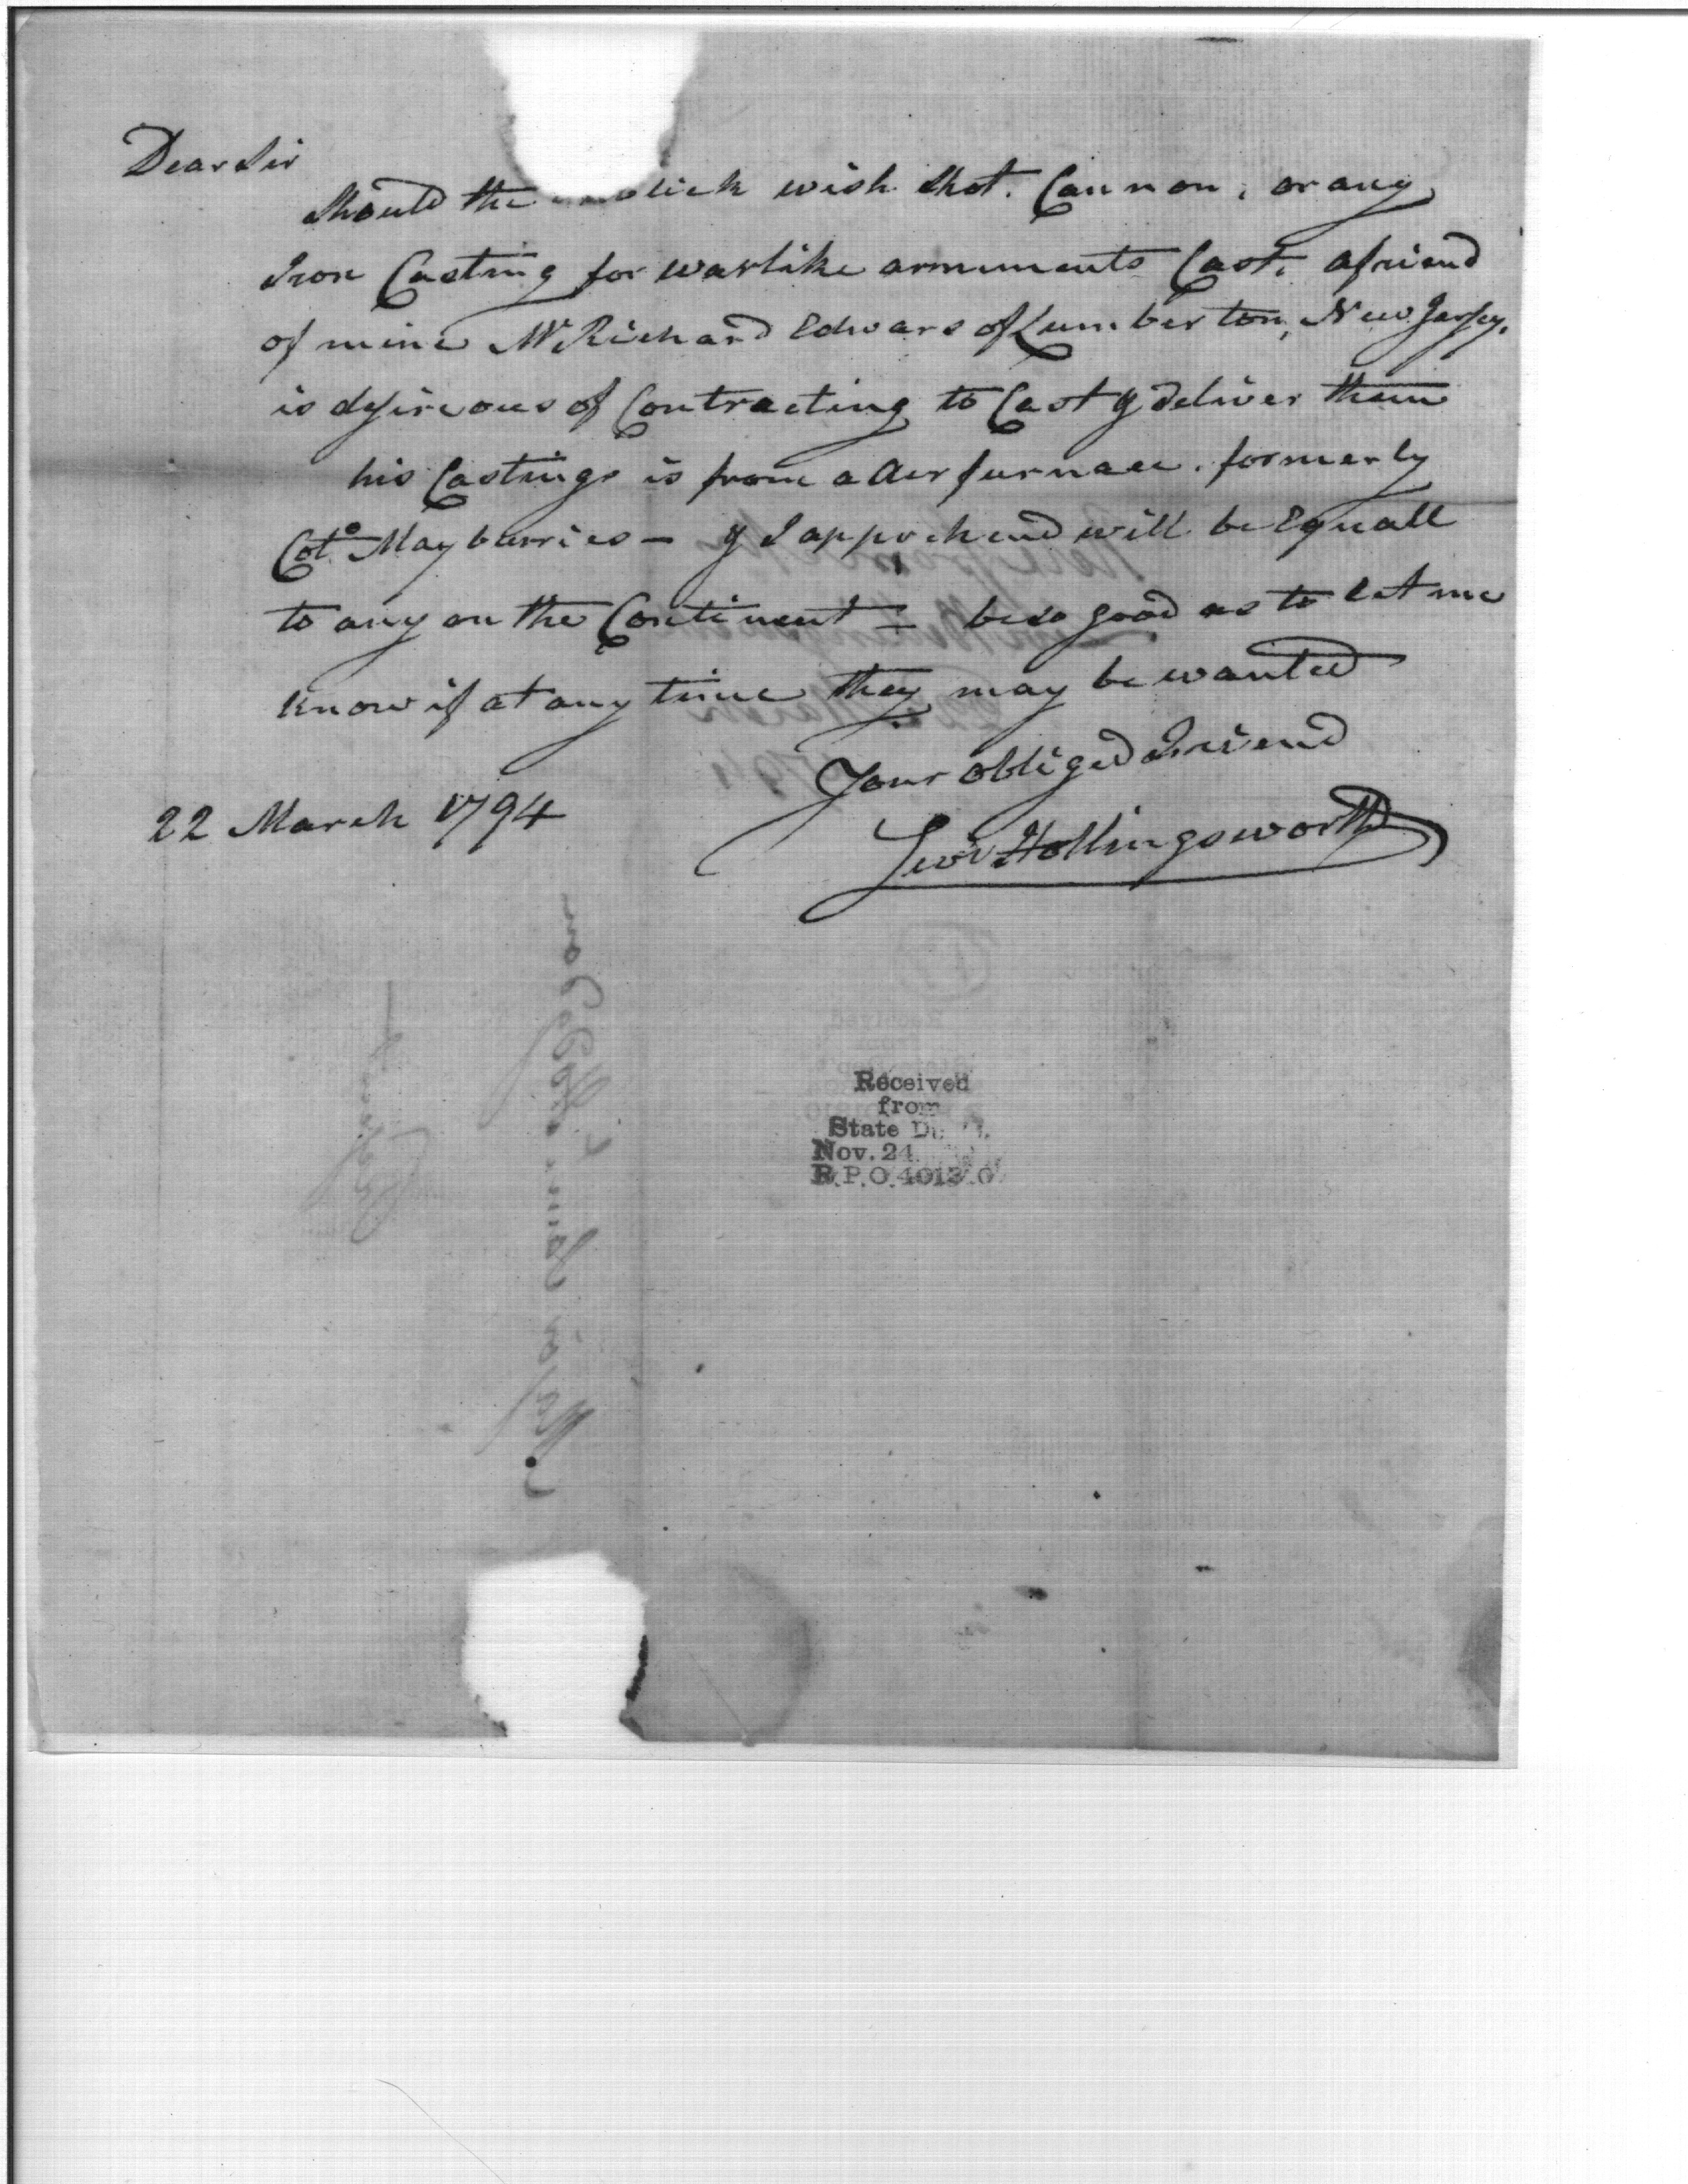 Dear Sir
Should the publick wish Shot. Cannon, or any
Iron Casting for warlike armuments Cast, a friend
of mine Mr Richard Edwars of Lumberton, New Jersey.
is desireous of Contracting to Cast & deliver them
his Castings is from a Air furnace. formerly
Colo Mayburries – & I apprehend will be Equall
to any on the Continent = be so good as to let me
know if at any time they may be wanted
Your obliged Friend
22 March 1794
Levi Hollingsworth
Received
from
State
Nov. 24
R.P.O.